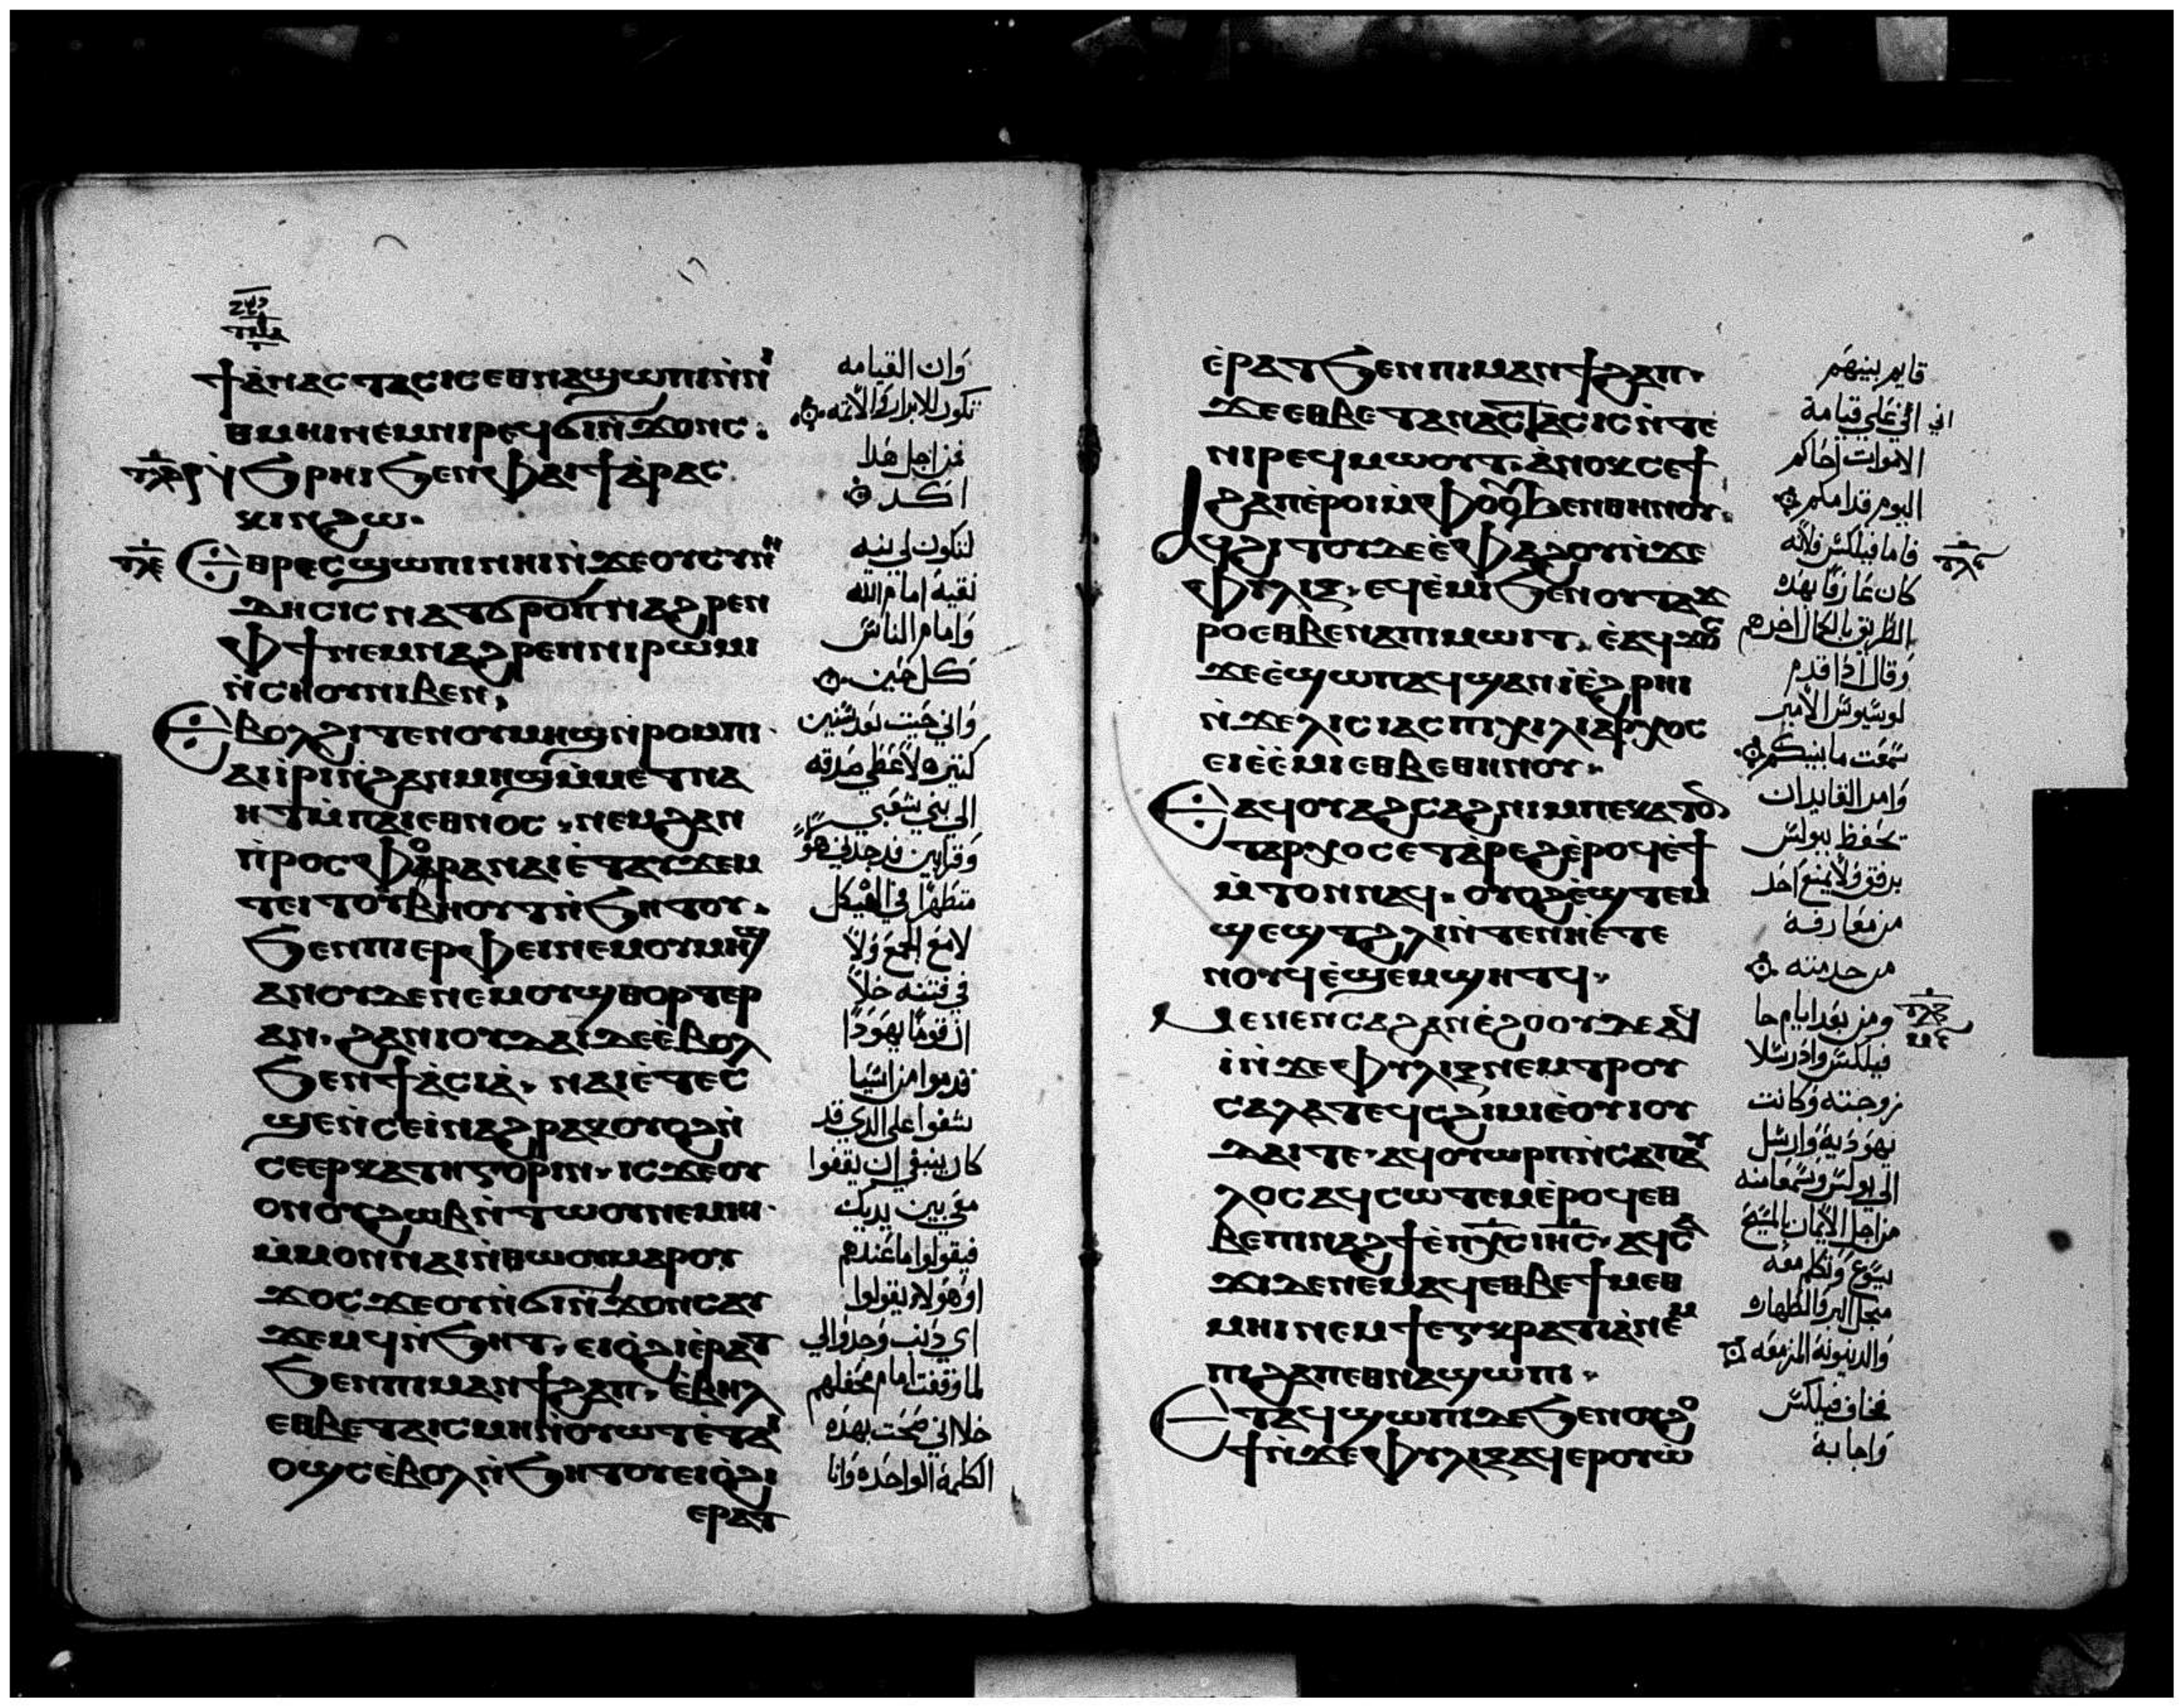 ϯⲁⲛⲁⲥⲧⲁⲥⲓⲥ ⲉⲑⲛⲁϣⲱⲡⲓ ⲛ̀ⲛⲓ
ⲑⲙⲏⲓ ⲛⲉⲙ ⲛⲓⲣⲉϥϭⲓⲛ̀ϫⲟⲛⲥ.
ϧⲣⲏⲓ ϧⲉⲛ ⲫⲁⲓ ϯⲁ̀ⲣⲁⲥ
ⲕⲓⲛ ϩⲱ.
ⲉⲑⲣⲉⲥϣⲱⲡⲓ ⲛⲏⲓ ⲛ̀ϫⲉ ⲟⲩⲥⲩⲛⲏ
ⲇⲏⲥⲓⲥ ⲛⲁⲧϭⲣⲟⲡ ⲛⲁϩⲣⲉⲛ
ⲫϯ ⲛⲉⲙ ⲛⲁϩⲣⲉⲛ ⲛⲓⲣⲱⲙⲓ
ⲛ̀ⲥⲏⲟⲩ ⲛⲓⲃⲉⲛ,
ⲉⲃⲟⲗ ϩⲓⲧⲉⲛ ⲟⲩⲙⲏϣ ⲛ̀ⲣⲟⲙⲡⲓ
ⲁⲓⲓ̀ⲣⲓ ⲛ̀ϩⲁⲛⲙⲏϣ ⲙ̀ⲙⲉⲧⲛⲁ
ⲏⲧ ⲙ̀ⲡⲁⲓⲉⲑⲛⲟⲥ. ⲛⲉⲙ ϩⲁⲛ
ⲡ̀ⲣⲟⲥⲫⲟⲣⲁ ⲛⲁⲓ ⲉ̀ⲧⲁⲩϫⲉⲙ
ⲧ ⲉⲓⲧⲟⲩⲃⲏⲟⲩⲧ ⲛ̀ϧⲏⲧⲟⲩ.
ϧⲉⲛ ⲡⲓⲉⲣⲫⲉⲓ ⲛⲉⲙ ⲟⲩⲙⲏϣ
ⲁⲛ ⲟⲩⲇⲉ ⲛⲉⲙ ⲟⲩϣⲑⲟⲣⲧⲉⲣ
ⲁⲛ. ϩⲁⲛⲓⲟⲩⲇⲁⲓ ⲇⲉ ⲉ̀ⲃⲟⲗ
ϧⲉⲛ ϯⲁ̀ⲥⲓⲁ̀. ⲛⲁⲓ ⲉ̀ⲧⲉⲥ
ϣⲉ ⲛ̀ⲥⲉⲓ̀ ⲛⲁϩⲣⲁⲕ ⲟⲩⲟϩ ⲛ̀
ⲥⲉⲉⲣⲕⲁⲧⲏⲅⲟⲣⲓⲛ. ⲓⲥϫⲉ ⲟⲩ
ⲟⲛ ⲟⲩϩⲱⲃ ⲛ̀ⲧⲱⲟⲩ ⲛⲉⲙⲏⲓ
ⲙ̀ⲙⲟⲛ ⲛⲁⲓ ⲛ̀ⲑⲱⲟⲩ ⲙⲁⲣⲟⲩ
ϫⲟⲥ ϫⲉ ⲟⲩ ⲛ̀ϭⲓⲛ̀ϫⲟⲛⲥ ⲁⲩ
ϫⲉⲙϥ ⲛ̀ϧⲏⲧ. ⲉⲓⲟ̀ϩⲓ ⲉ̀ⲣⲁⲧ
ϧⲉⲛ ⲡⲓⲙⲁⲛϯϩⲁⲡ. ⲉ̀ⲃⲏⲗ
ⲉⲑⲃⲉ ⲧⲁⲓⲥⲙⲏ ⲛ̀ⲟⲩⲱⲧ ⲉ̀ⲧⲁⲓ
ⲟϣⲥ ⲉ̀ⲃⲟⲗ ⲛ̀ϧⲏⲧⲟⲩ ⲉⲓⲟ̀ϩⲓ
ⲉⲣⲁⲧ
وان القيامه
تكون للابرار والاثمه
فمن اجل هذا
اكد
لتكون لي نيه
نقية امام الله
وامام الناس
كل حين
واني جيت بعد سنين
كثيره لاعطي صدقه
الى بني شعبي
وقرابين قد وجدني هؤ
متطهرا في الهيكل
لا مع الجمع ولا
في فتنه خلا
ان قوما يهودا
قدموا من اسيا
كان ينبغي ان يقفوا
معي بين يديك
فيقولوا ما عندهم
او هولاء يقولوا
اي ذنب وجدوا لي
لما وقفت امام محفلهم
خلا اني صحت بهذه
الكلمة الواحده وانا
ⲉ̀ⲣⲁⲧ ϧⲉⲛ ⲡⲓⲙⲁⲛϯϩⲁⲡ.
ϫⲉ ⲉⲑⲃⲉ ⲧⲁⲛⲁⲥⲧⲁⲥⲓⲥ ⲛ̀ⲧⲉ
ⲛⲓⲣⲉϥⲙⲱⲟⲩⲧ. ⲁⲛⲟⲕ ⲥⲉϯ
ϩⲁⲡ ⲉ̀ⲣⲟⲓ ⲙ̀ⲫⲟⲟⲩ ϧⲉⲛ ⲑⲏⲛⲟⲩ.
ⲁϥϩⲓⲧⲟⲩ ⲇⲉ ⲉ̀ⲫⲁϩⲟⲩ ⲛ̀ϫⲉ
ⲫⲩⲗⲓⲝ. ⲉϥⲉ̀ⲙⲓ ϧⲉⲛ ⲟⲩⲧⲁϫ
ⲣⲟ ⲉⲑⲃⲉ ⲛⲁ ⲡⲓⲙⲱⲓⲧ. ⲉ̀ⲁϥϫⲟⲥ
ϫⲉ ⲉ̀ϣⲱⲡ ⲁϥϣⲁⲛⲓ̀ ⲉ̀ϩⲣⲏⲓ
ⲛ̀ϫⲉ ⲗⲓⲥⲓⲁⲥ ⲡⲓⲭⲓⲗⲓⲁⲣⲭⲟⲥ
ⲉⲓⲉ̀ⲉ̀ⲙⲓ ⲉⲑⲃⲉ ⲑⲏⲛⲟⲩ.
ⲉⲁϥⲟⲩⲁϩⲥⲁϩⲛⲓ ⲙ̀ⲡⲉⲕⲁⲧⲟⲛ
ⲧⲁⲣⲭⲟⲥ ⲉⲧⲁⲣⲉϩ ⲉ̀ⲣⲟϥ ⲉ̀ϯ
ⲙ̀ⲧⲟⲛ ⲛⲁϥ. ⲟⲩⲟϩ ⲉ̀ϣⲧⲉⲙ
ϣⲉϣⲧ ϩⲗⲓ ⲛ̀ⲧⲉ ⲛⲏⲉ̀ⲧⲉ
ⲛⲟⲩϥ ⲉ̀ϣⲉⲙϣⲏⲧϥ.
ⲙⲉⲛⲉⲛⲥⲁ ϩⲁⲛⲉ̀ϩⲟⲟⲩ ⲇⲉ ⲁϥ
ⲓ̀ ⲛ̀ϫⲉ ⲫⲩⲗⲓⲝ ⲛⲉⲙ ⲧⲣⲟⲩ
ⲥⲁⲗⲁ ⲧⲉϥⲥϩⲓⲙⲓ ⲉ̀ⲟⲩⲓⲟⲩ
ⲇⲁⲓ ⲧⲉ. ⲁϥⲟⲩⲱⲣⲡ ⲛ̀ⲥⲁ ⲡⲁⲩ
ⲗⲟⲥ ⲁϥⲥⲱⲧⲉⲙ ⲉ̀ⲣⲟϥ ⲉⲑ
ⲃⲉ ⲡⲓⲛⲁϩϯ ⲉ̀ⲡⲭⲥ ⲓⲏⲥ. ⲁϥⲥⲁ
ϫⲓ ⲇⲉ ⲛⲉⲙⲁϥ ⲉⲑⲃⲉ ϯⲙⲉⲑ
ⲙⲏⲓ ⲛⲉⲙ ϯⲉⲅⲕⲣⲁⲧⲓⲁ ⲛⲉⲙ
ⲡⲓϩⲁⲡ ⲉⲑⲛⲁϣⲱⲡⲓ.
ⲉⲧⲁϥϣⲱⲡⲓ ⲇⲉ ϧⲉⲛ ⲟⲩϩⲟ
ϯ ⲛ̀ϫⲉ ⲫⲩⲗⲓⲝ ⲁϥⲉⲣⲟⲩⲱ̀
قايم بينهم
اني الي على قيامة
الاموات احاكم
اليوم قدامكم
فاما فيلكس فلانه
كان عارفا بهذه
الطريق بالكمال اخرهم
وقال اذا قدم
لوسيوس الامير
سمعت ما بينكم
وامر القايدان
يحفظ ببولس
برفق ولا يمنع احد
من معارفه
من خدمته
ومن بعد ايام جا
فيلكس وادرسلا
زوجته وكانت
يهودية وارسل
الى بولس وسمعا منه
من اجل الايمان بالمسيح
يسوع وتكلم معه
من اجل البر والطهاره
والدينونة المزمعه
فخاف فيلكس
واجابه